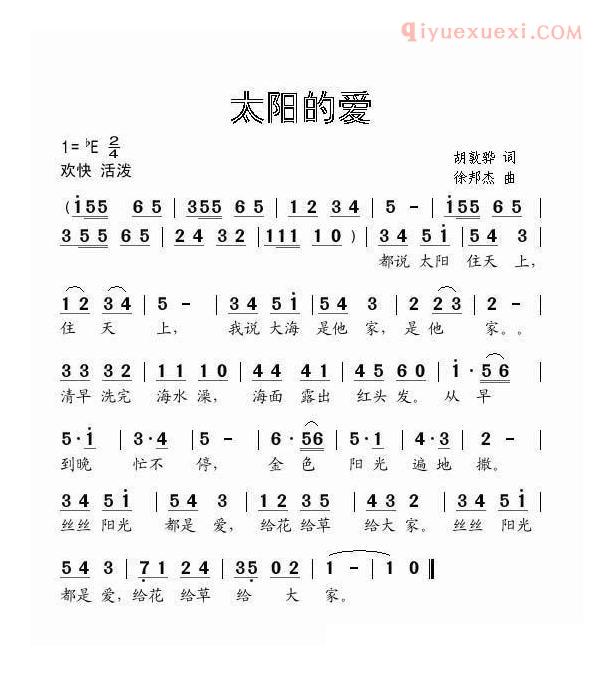 qiyuexuexi.COM
太阳的爱
1=♭E 2/4
胡敦骅 词
欢快 活泼
徐邦杰 曲
(i55 65 | 355 65 | 12 34 | 5 - | i55 65 |
355 65 | 24 32 | 111 10) | 34 5i | 54 3 |
都说 太阳 住天 上,
12 34 | 5 - | 34 5i | 54 3 | 2 23 | 2 - |
住 天 上, 我说 大海 是他 家, 是他 家。。
33 32 | 11 10 | 44 41 | 45 60 | i·56 |
清早 洗完 海水 澡, 海面 露出 红头 发。 从 早
5·i | 3·4 | 5 - | 6·56 | 5·1 | 4·3 | 2 - |
到晚 忙不 停, 金色 阳光 遍地 撒。
34 5i | 54 3 | 12 35 | 432 | 34 5i |
丝丝 阳光 都是 爱, 给花 给草 给大 家。 丝丝 阳光
54 3 | 71 24 | 35 02 | 1 - | 1 0 ‖
都是 爱, 给花 给草 给 大 家。